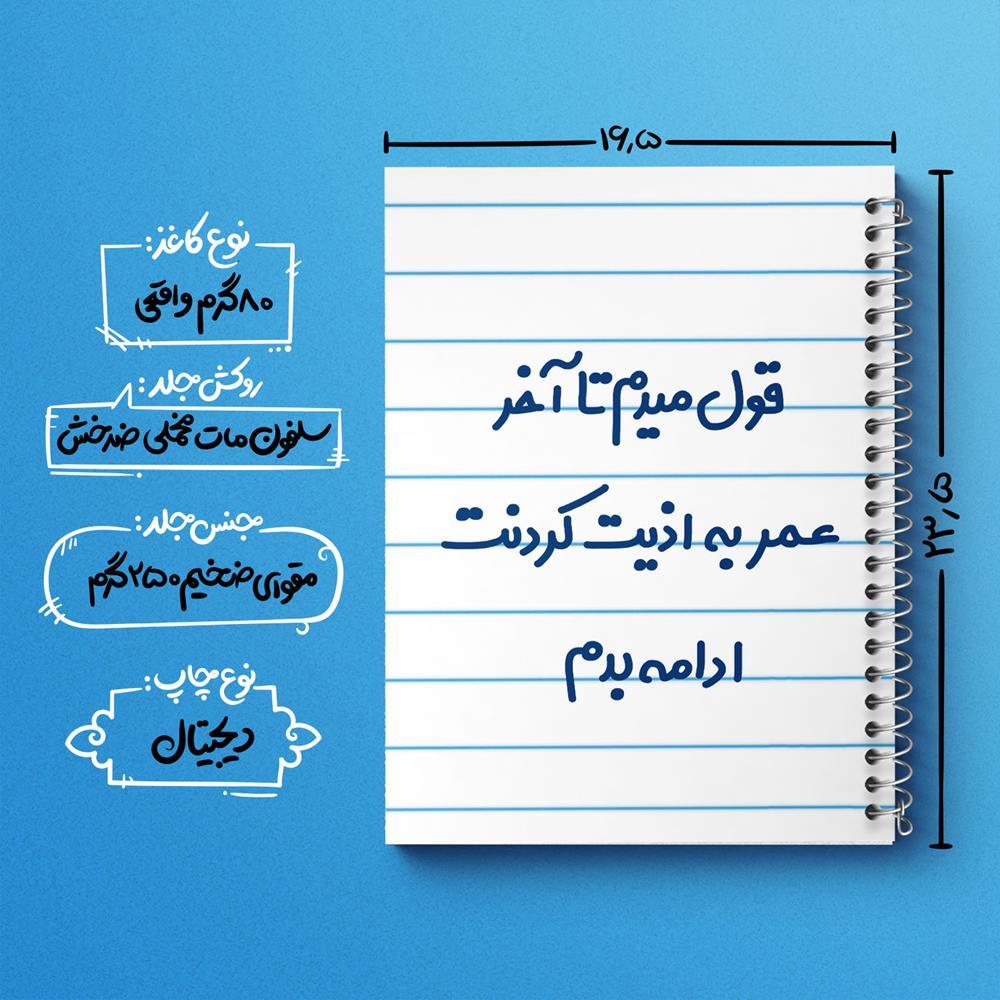 ۱۶٫۵
۲۳٫۵
قول میدم تا آخر
عمر به اذیت کردنت
ادامه بدم
نوع کاغذ:
۸۰ گرم واقعی
روکش جلد:
سلفون مات مخملی ضدخش
جنس جلد:
مقوای ضخیم ۲۵۰ گرم
نوع چاپ:
دیجیتال